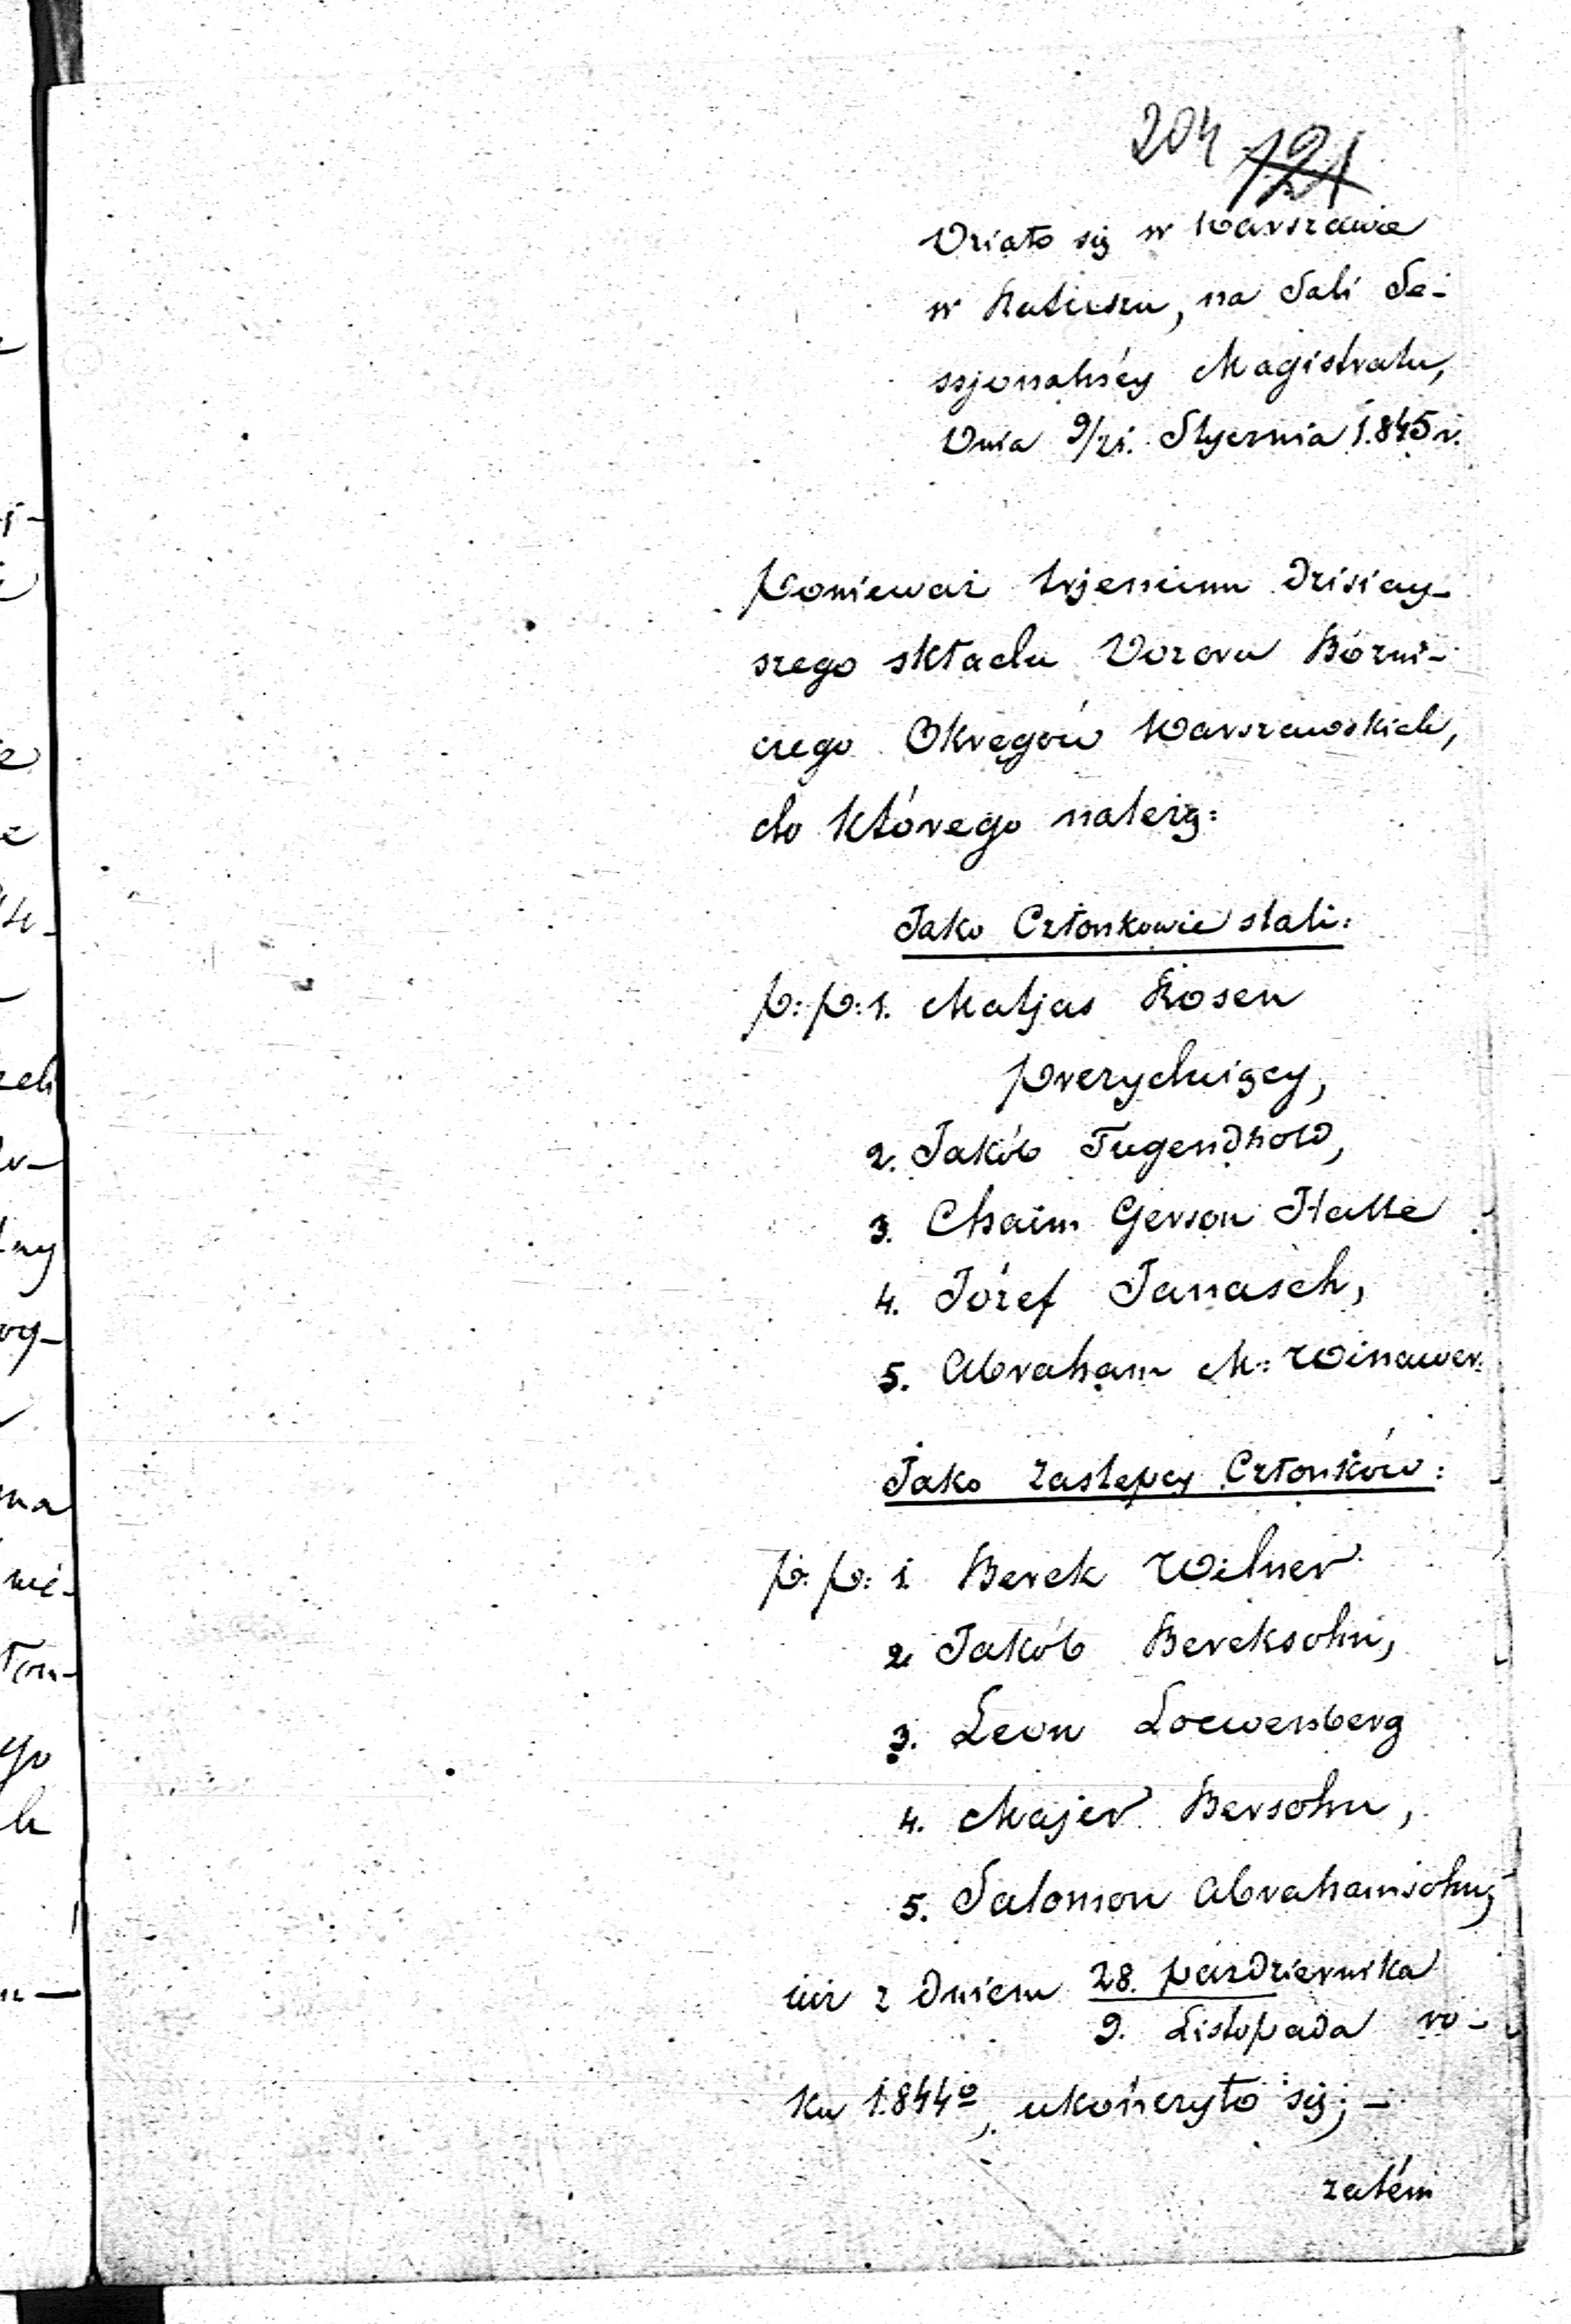 204 121
Działo się w Warszawie
w Ratuszu, na Sali Se-
ssjonalnéy Magistratu,
Dnia 9/21. Stycznia 1.845 r.
Ponieważ tryennium dzisiay-
szego składu Dozoru Bózni-
czego Okręgów Warszawskich,
do którego należą:
Jako Członkowie stali:
P: P: 1. Matjas Rosen
Prezyduiący,
2. Jakób Tugendhold,
3. Chaim Gerson Halle
4. Józef Janasch,
5. Abraham M: Winawer.
Jako Zastępcy Członków:
P: P: 1 Berek Wilner
2. Jakób Bereksohn,
3. Leon Loewenberg
4. Majer Bersohn,
5. Salomon Abrahamsohn,
iuż z dniem 28. Października
9. Listopada ro-
ku 1.844º, ukończyło się; –
zatém